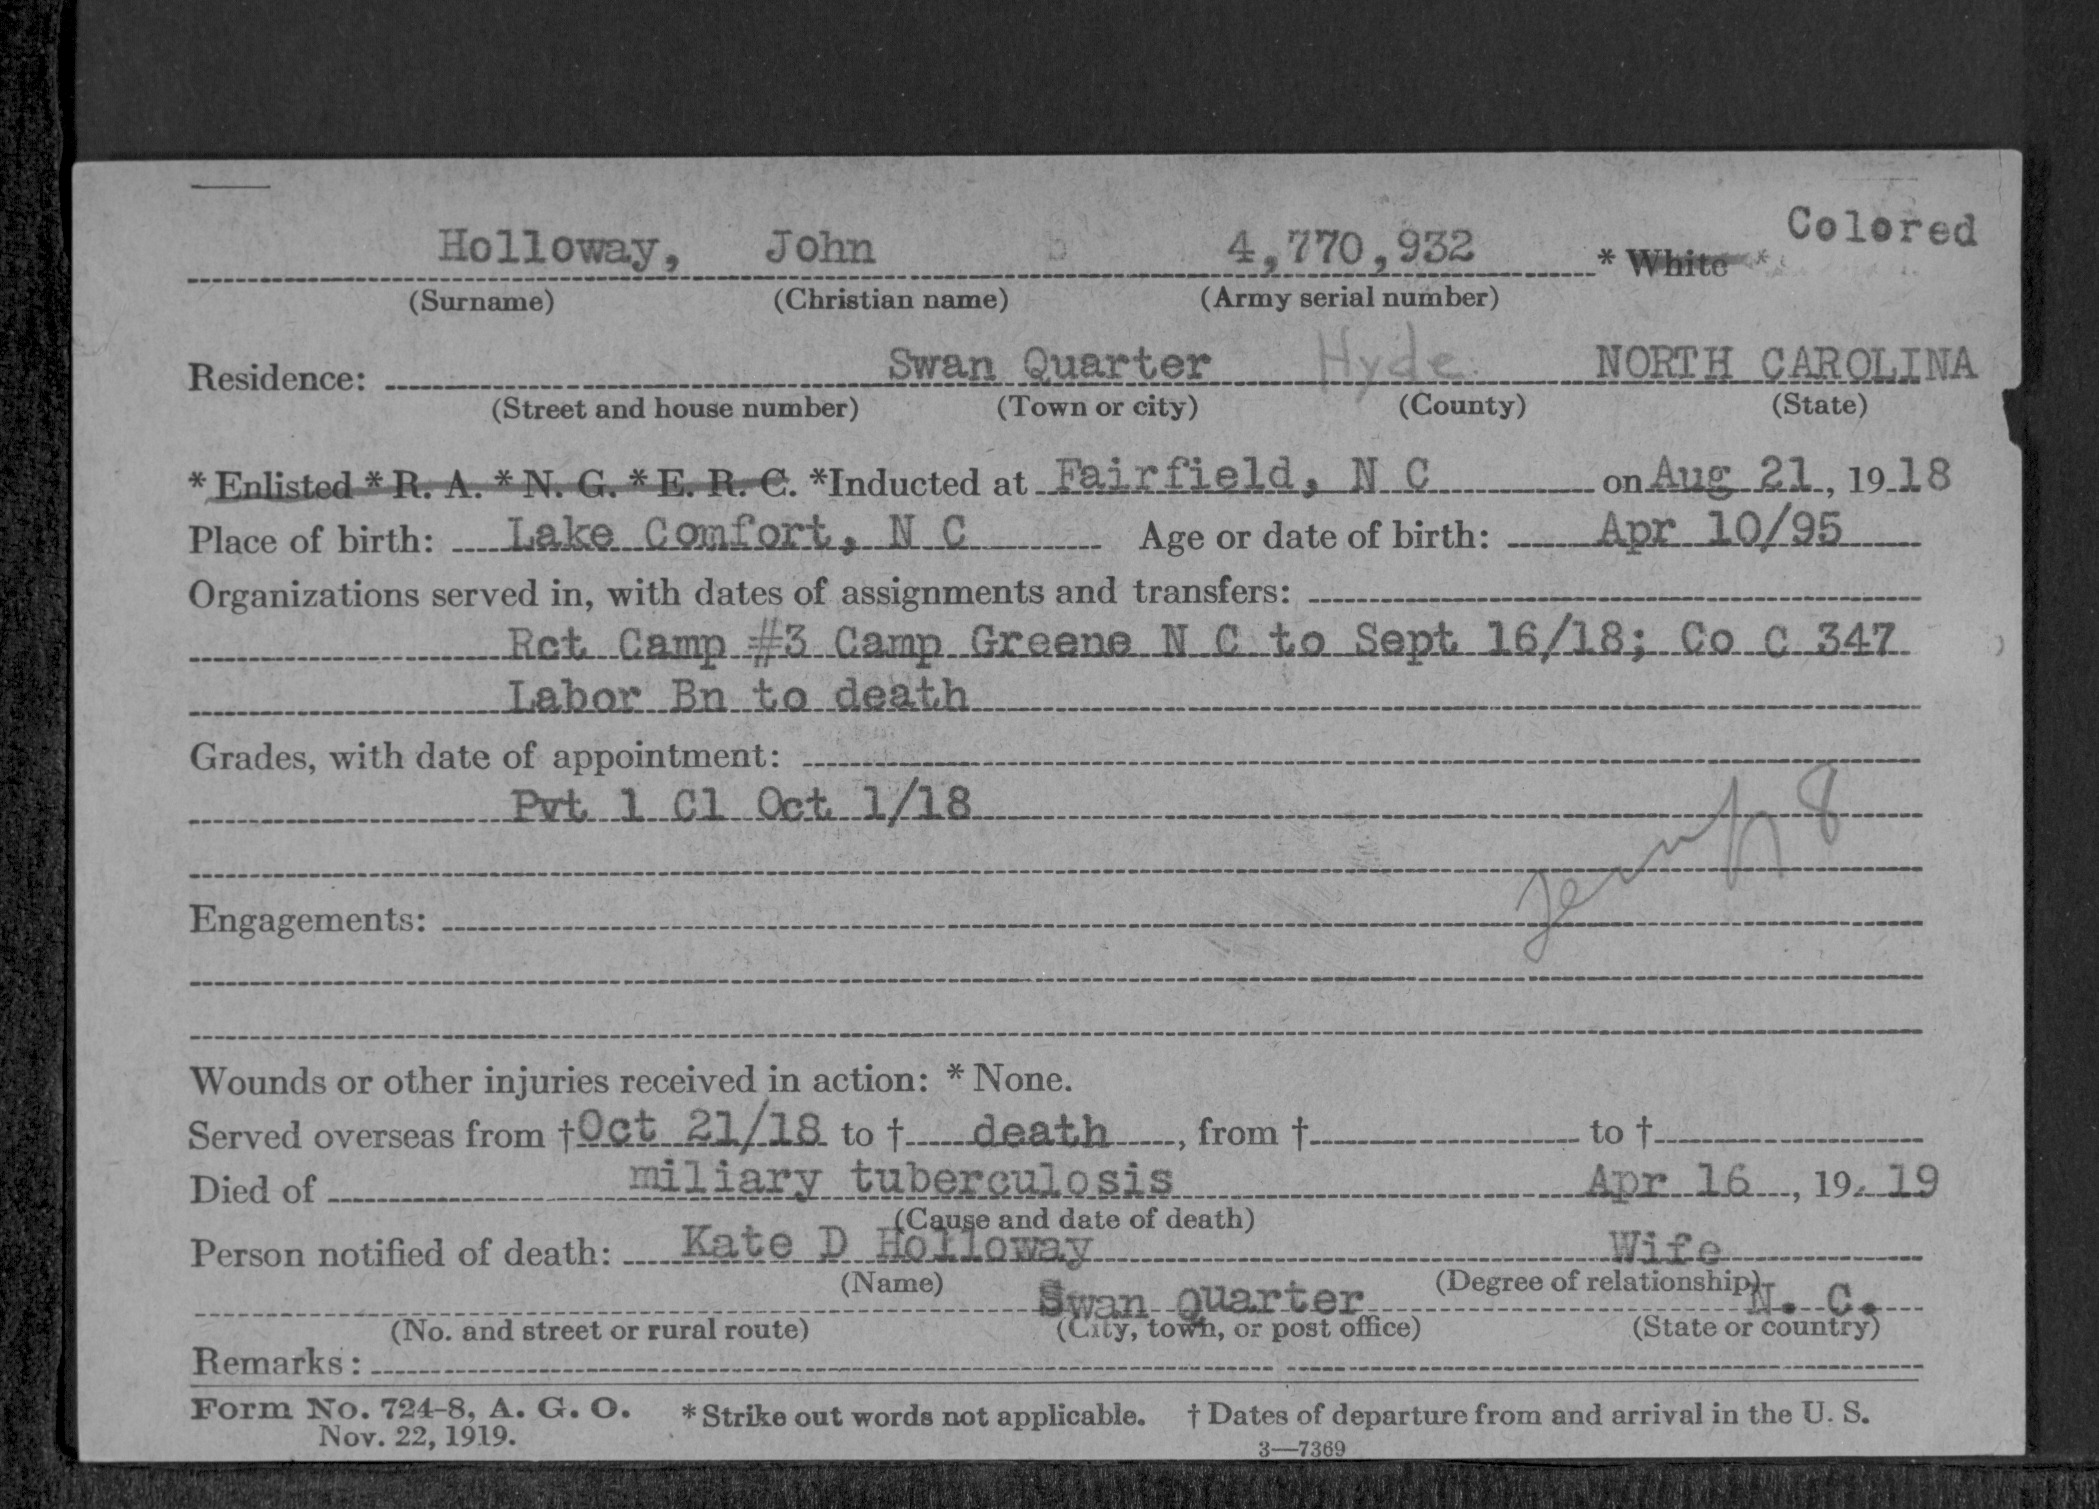 Colored
Holloway, John 4,770,932 * White *
(Surname) (Christian name) (Army serial number)
Residence: Swan Quarter Hyde NORTH CAROLINA
(Street and house number) (Town or city) (County) (State)
* Enlisted * R. A. * N. G. * E. R. C. *Inducted at Fairfield, N C on Aug 21, 1918
Place of birth: Lake Comfort, N C Age or date of birth: Apr 10/95
Organizations served in, with dates of assignments and transfers:
Rct Camp #3 Camp Greene N C to Sept 16/18; Co C 347
Labor Bn to death
Grades, with date of appointment:
Pvt 1 Cl Oct 1/18
Engagements:
Wounds or other injuries received in action: * None.
Served overseas from †Oct 21/18 to † death, from † to †
Died of miliary tuberculosis Apr 16, 19 19
(Cause and date of death)
Person notified of death: Kate D Holloway Wife
(Name) (Degree of relationship)
Swan quarter N. C.
(No. and street or rural route) (City, town, or post office) (State or country)
Remarks:
Form No. 724-8, A. G. O. * Strike out words not applicable. † Dates of departure from and arrival in the U. S.
Nov. 22, 1919. 3—7369